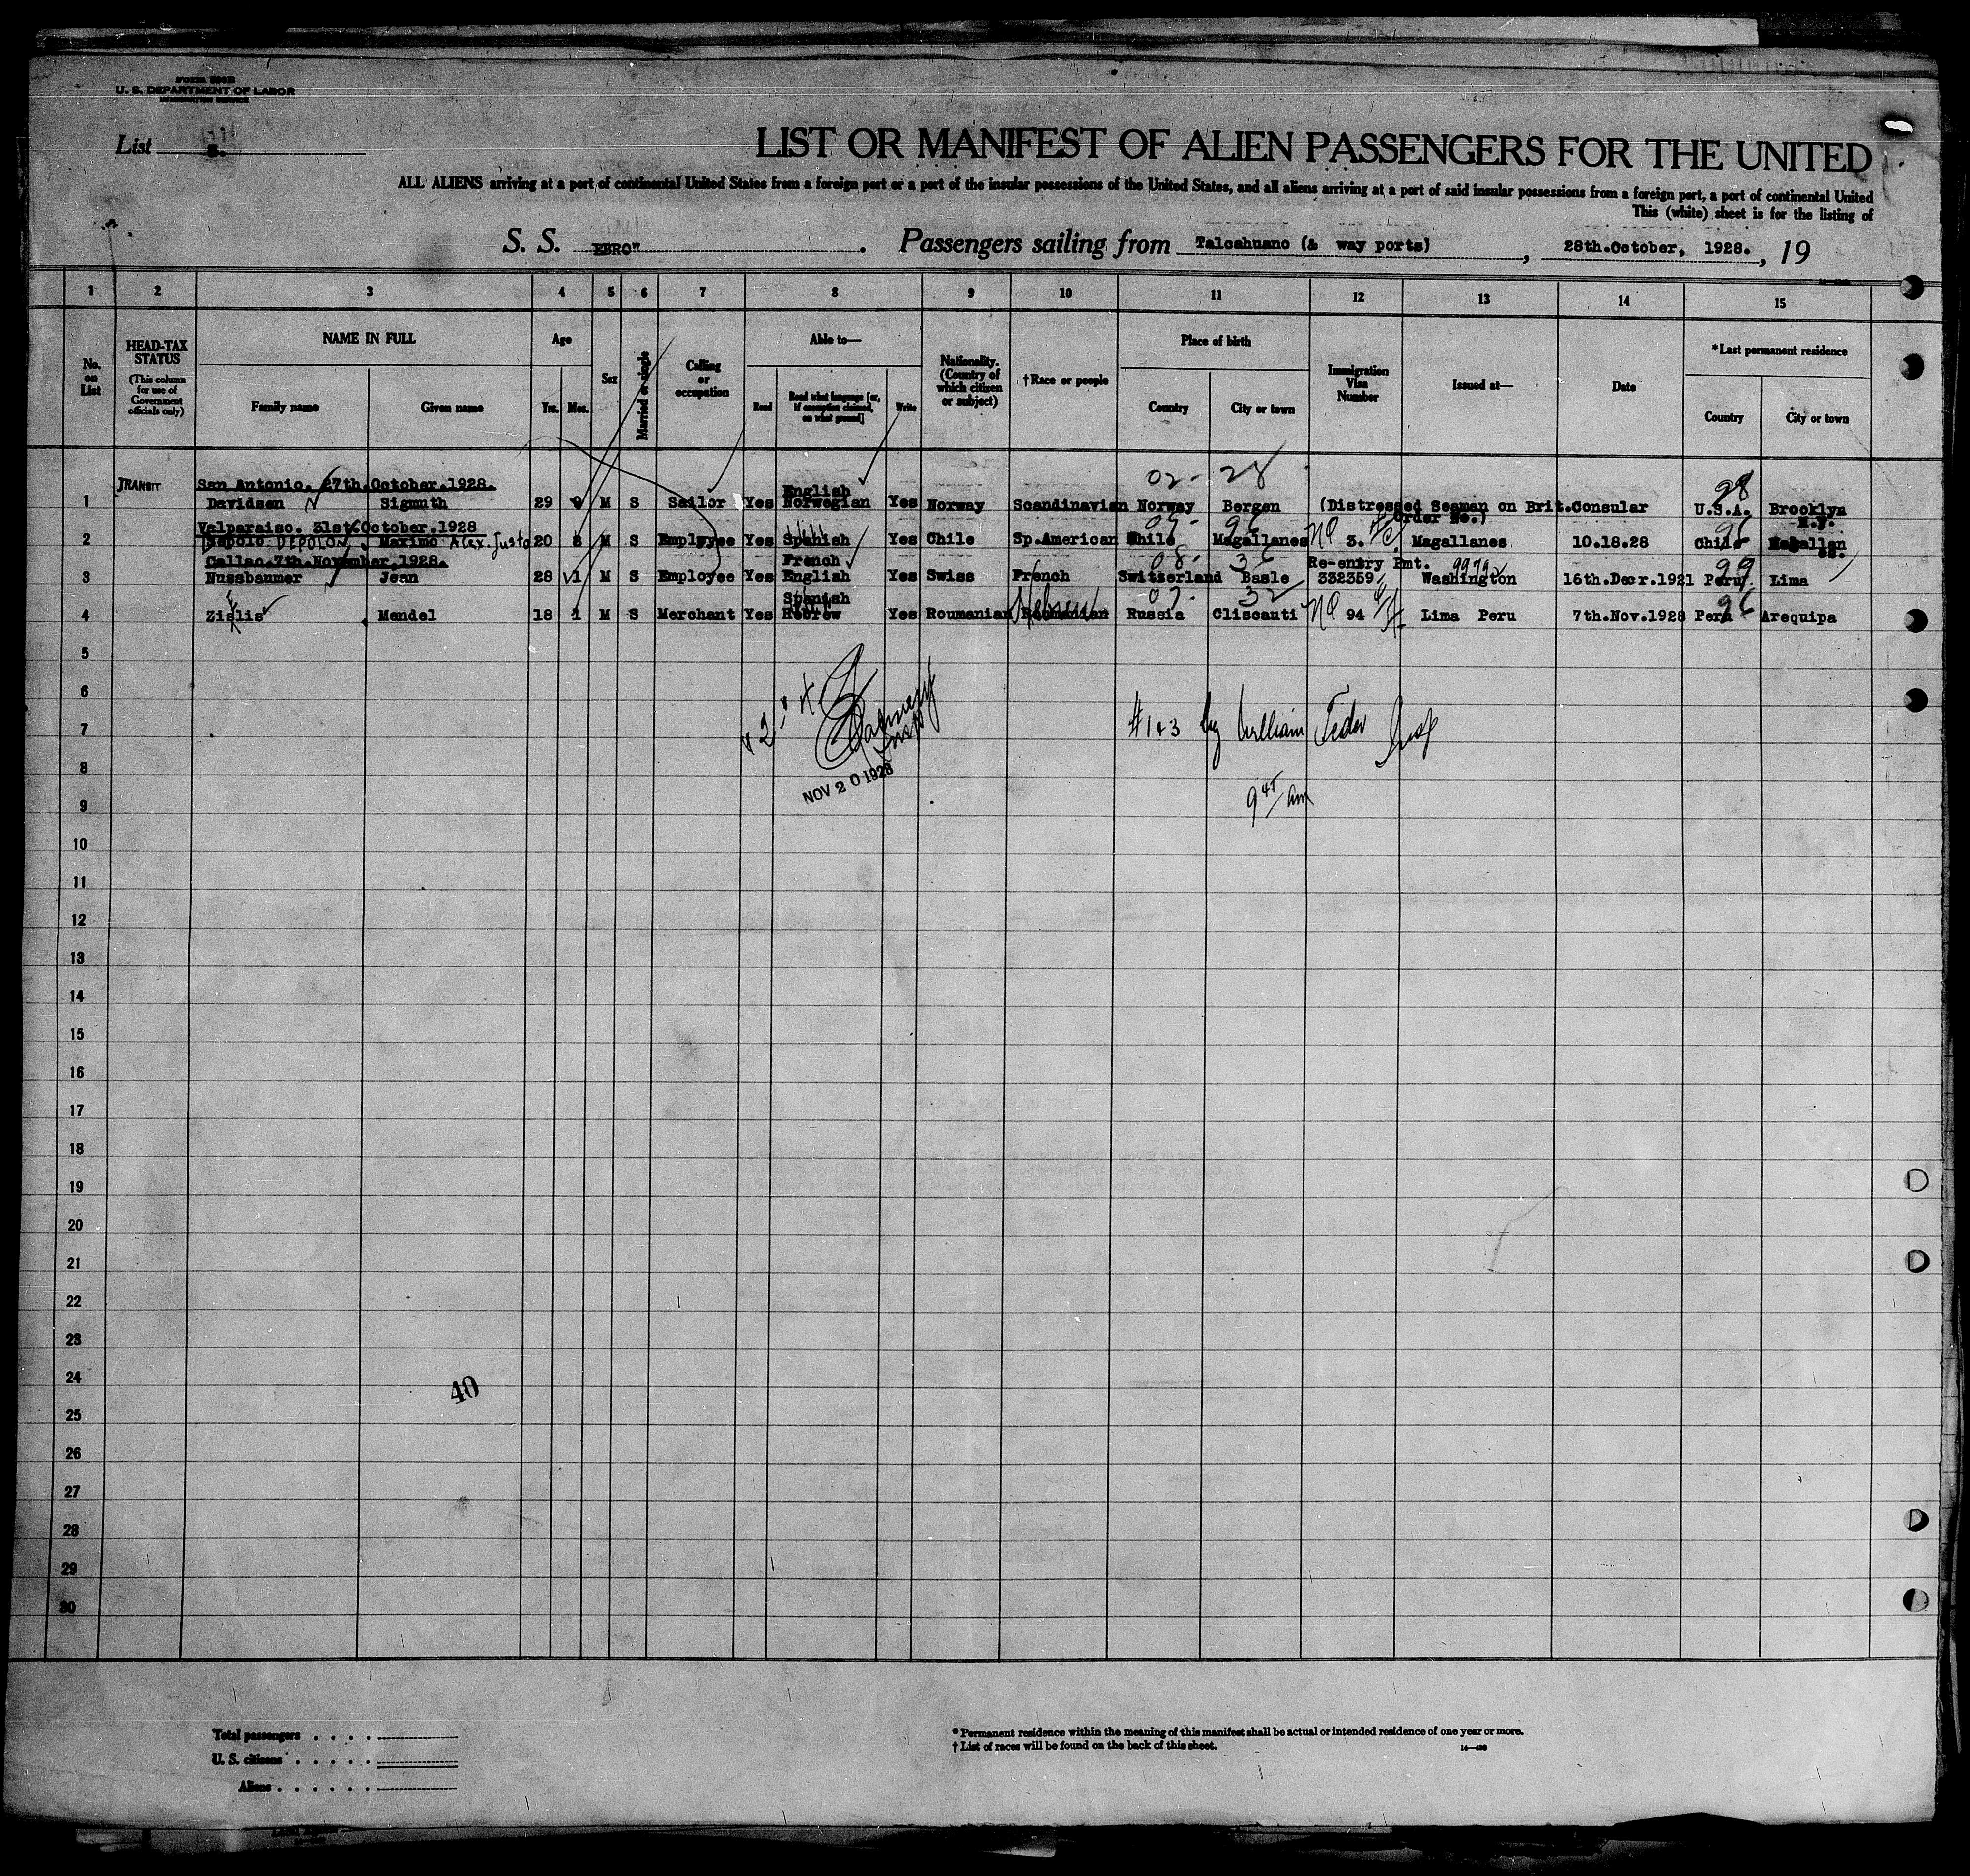 U. S. DEPARTMENT OF LABOR
List
LIST OR MANIFEST OF ALIEN PASSENGERS FOR THE UNITED
ALL ALIENS arriving at a port of continental United States from a foreign port or a port of the insular possessions of the United States, and all aliens arriving at a port of said insular possessions from a foreign port, a port of continental United
This (white) sheet is for the listing of
S. S. EBRO" . Passengers sailing from Talcahuano (& way ports) , 28th.October, 1928. , 19
1 2 3 4 5 6 7 8 9 10 11 12 13 14 15
No. on List
HEAD-TAX STATUS
(This column for use of Government officials only)
NAME IN FULL
Family name Given name
Age
Yrs. Mos.
Sex
Married or single
Calling or occupation
Able to—
Read Read what language [or, if exemption claimed, on what ground] Write
Nationality. (Country of which citizen or subject)
†Race or people
Place of birth
Country City or town
Immigration Visa Number
Issued at—
Date
*Last permanent residence
Country City or town
02- 28
TRANSIT San Antonio. 27th.October.1928. English 98
1 Davidsen Sigmuth 29 9 M S Sailor Yes Norwegian Yes Norway Scandinavian Norway Bergen (Distressed Seaman on Brit.Consular U.S.A. Brooklyn
Order No.) N.Y.
Valparaiso. 31st.October.1928
2 DEPOLON Maximo Alex. Justo 20 M S Employee Yes Spanish Yes Chile Sp.American Chile Magallanes NQ 3. Magallanes 10.18.28 Chile
Callao.7th.November.1928. French 08- 36 Re-entry Pmt. 99792 99
3 Nussbaumer Jean 28 1 M S Employee Yes English Yes Swiss French Switzerland Basle 332359 Washington 16th.Decr.1921 Peru Lima
Spanish 07- 32
4 Zislis Mendel 18 1 M S Merchant Yes Hebrew Yes Roumanian Hebrew Russia Cliscauti NQ 94 Lima Peru 7th.Nov.1928 Peru 96 Arequipa
5
6
7 #1&3 by William Insp
8
NOV 20 1928
9 9 45/ am
10
11
12
13
14
15
16
17
18
19
20
21
22
23
24
40
25
26
27
28
29
30
Total passengers
U. S. citizens
Aliens
* Permanent residence within the meaning of this manifest shall be actual or intended residence of one year or more.
† List of races will be found on the back of this sheet.